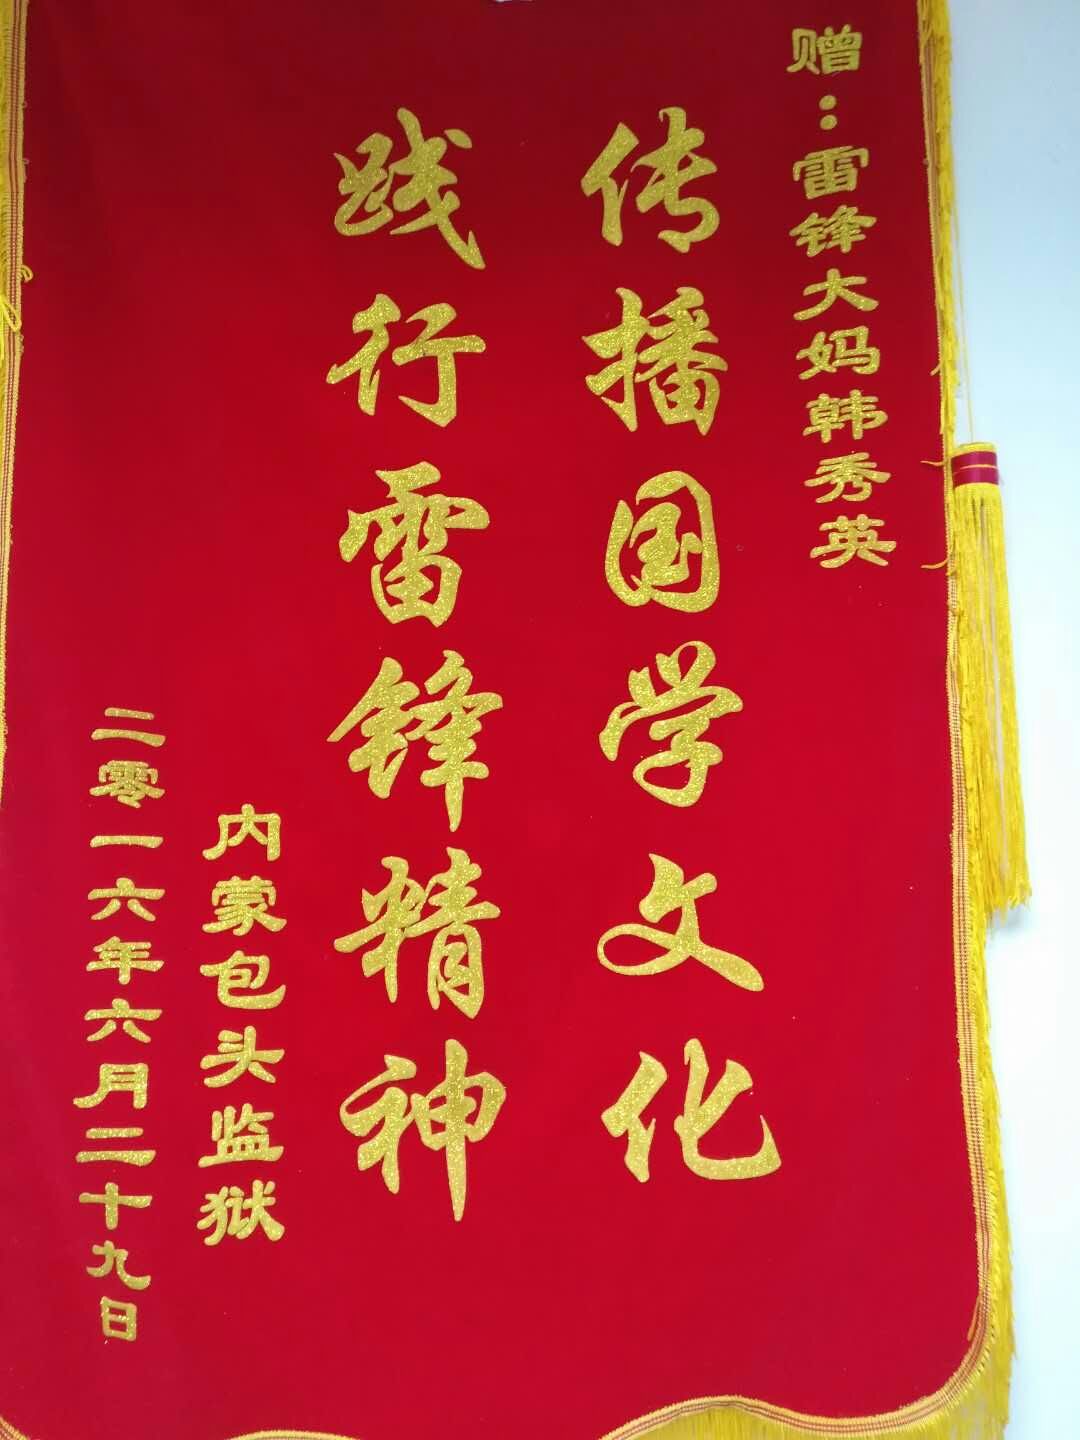 赠：雷锋大妈韩秀英
传播国学文化
践行雷锋精神
内蒙包头监狱
二零一六年六月二十九日